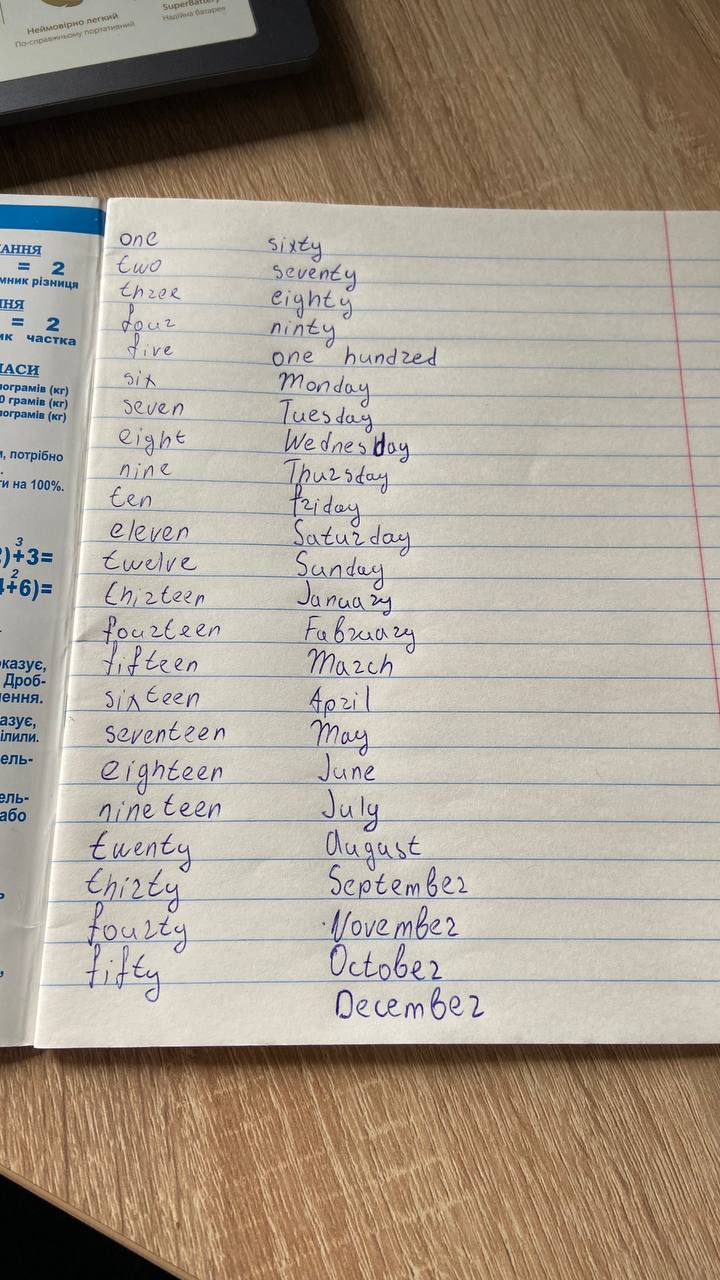 Неймовірно легкий
По-справжньому портативний
SuperBattery
Надійна батарея
АННЯ
= 2
мник різниця
ННЯ
= 2
ик частка
ЧАСИ
лограмів (кг)
0 грамів (кг)
лограмів (кг)
и, потрібно
ти на 100%.
3
2)+3=
2
4+6)=
оказує,
Дроб-
лення.
азує,
ілили.
ель-
ель-
або
one
two
three
four
five
six
seven
eight
nine
ten
eleven
twelve
thirteen
fourteen
fifteen
sixteen
seventeen
eighteen
nineteen
twenty
thirty
fourty
fifty
sixty
seventy
eighty
ninty
one hundred
Monday
Tuesday
Wednesday
Thursday
friday
Saturday
Sunday
January
Fabruary
March
April
May
June
July
August
September
November
October
December